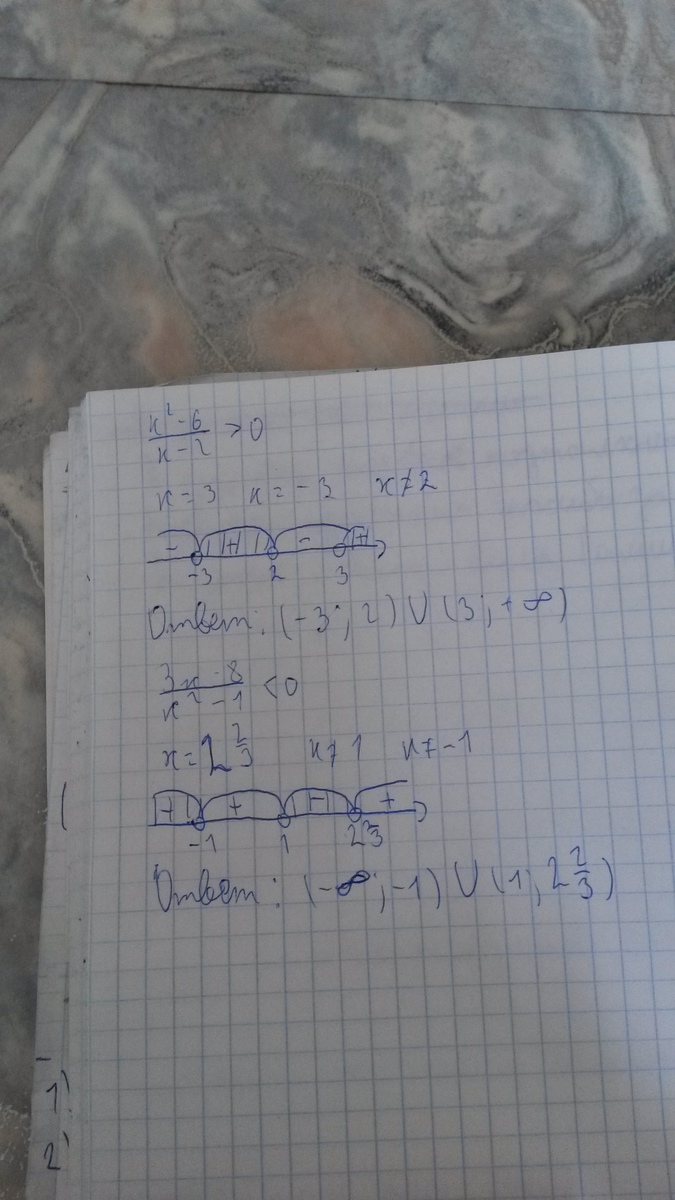 x² - 6 / x - 2 > 0
x = 3 x = - 3 x ≠ 2
- + - +
-3 2 3
Ответ: (-3; 2) ∪ (3; +∞)
3x - 8 / x² - 1 < 0
x = 2 2/3 x ≠ 1 x ≠ -1
+ -
+
-1 1 2 2/3
Ответ: (-∞; -1) ∪ (1; 2 2/3)
1)
2)